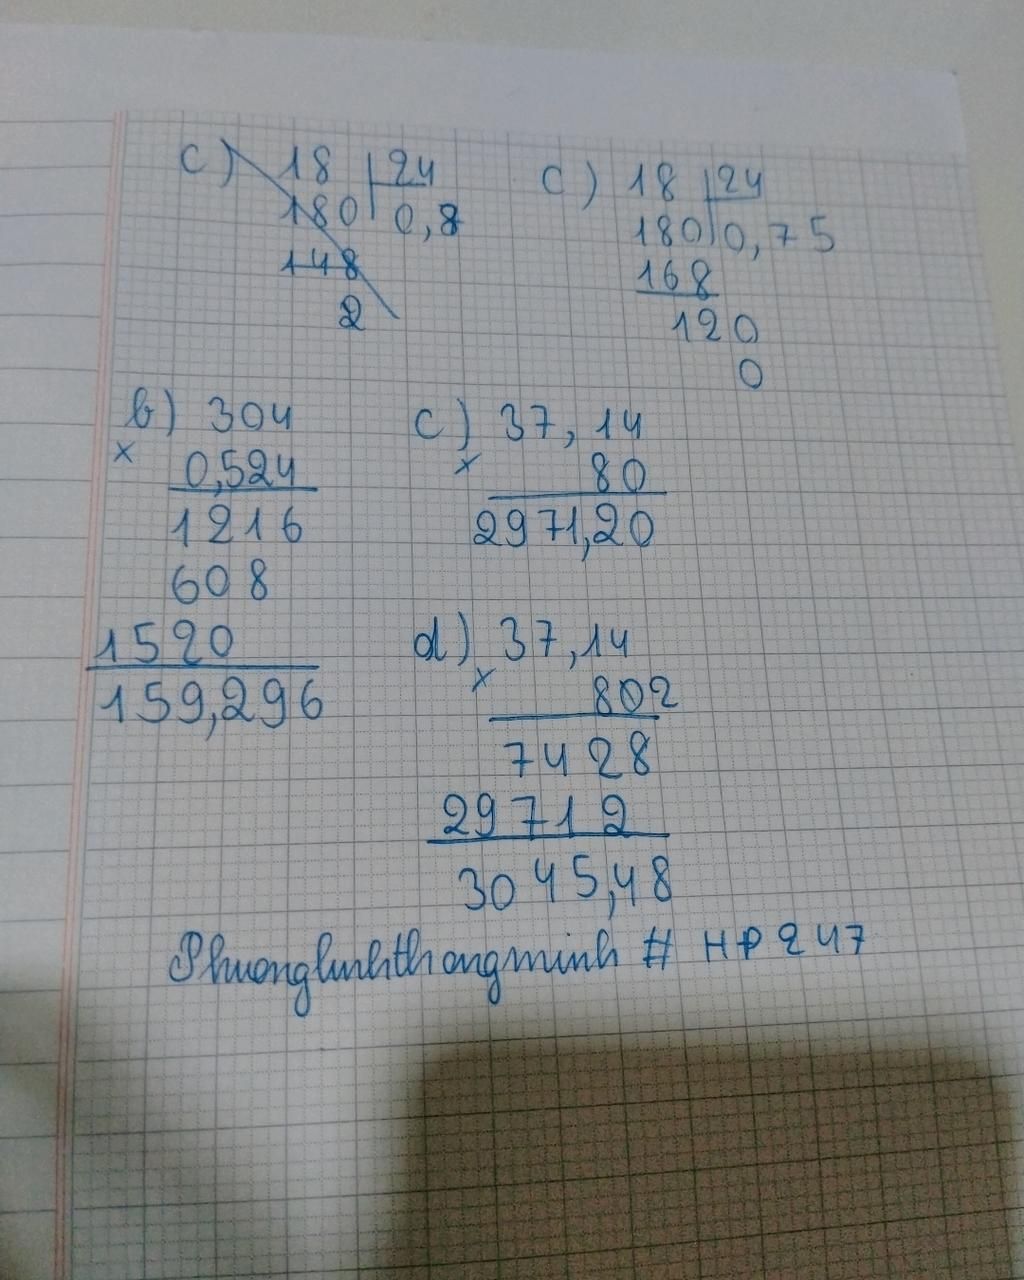 c) 18 | 24
180 | 0,8
148
2
c) 18 | 24
180 | 0,75
168
120
0
b) 304
×
0,524
1216
608
1520
159,296
c) 37,14
×
80
2971,20
d) 37,14
×
802
7428
29712
3045,48
Phuonglinhthongminh # HP247